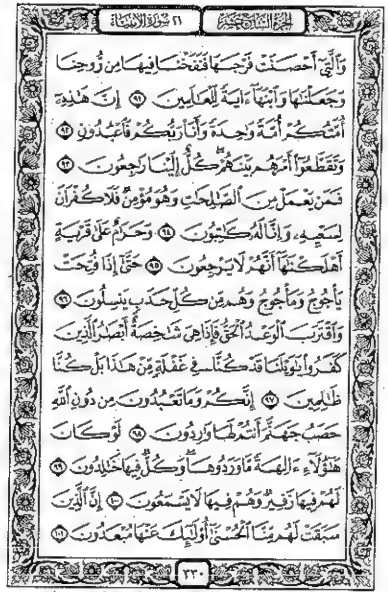 الجزء السابع عشر ٢١ سورة الأنبياء
وَٱلَّتِىٓ أَحْصَنَتْ فَرْجَهَا فَنَفَخْنَا فِيهَا مِن رُّوحِنَا
وَجَعَلْنَٰهَا وَٱبْنَهَآ ءَايَةً لِّلْعَٰلَمِينَ ٩١ إِنَّ هَٰذِهِۦٓ
أُمَّتُكُمْ أُمَّةً وَٰحِدَةً وَأَنَا۠ رَبُّكُمْ فَٱعْبُدُونِ ٩٢
وَتَقَطَّعُوٓا۟ أَمْرَهُم بَيْنَهُمْ ۖ كُلٌّ إِلَيْنَا رَٰجِعُونَ ٩٣
فَمَن يَعْمَلْ مِنَ ٱلصَّٰلِحَٰتِ وَهُوَ مُؤْمِنٌ فَلَا كُفْرَانَ
لِسَعْيِهِۦ وَإِنَّا لَهُۥ كَٰتِبُونَ ٩٤ وَحَرَٰمٌ عَلَىٰ قَرْيَةٍ
أَهْلَكْنَٰهَآ أَنَّهُمْ لَا يَرْجِعُونَ ٩٥ حَتَّىٰٓ إِذَا فُتِحَتْ
يَأْجُوجُ وَمَأْجُوجُ وَهُم مِّن كُلِّ حَدَبٍ يَنسِلُونَ ٩٦
وَٱقْتَرَبَ ٱلْوَعْدُ ٱلْحَقُّ فَإِذَا هِىَ شَٰخِصَةٌ أَبْصَٰرُ ٱلَّذِينَ
كَفَرُوا۟ يَٰوَيْلَنَا قَدْ كُنَّا فِى غَفْلَةٍ مِّنْ هَٰذَا بَلْ كُنَّا
ظَٰلِمِينَ ٩٧ إِنَّكُمْ وَمَا تَعْبُدُونَ مِن دُونِ ٱللَّهِ
حَصَبُ جَهَنَّمَ أَنتُمْ لَهَا وَٰرِدُونَ ٩٨ لَوْ كَانَ
هَٰٓؤُلَآءِ ءَالِهَةً مَّا وَرَدُوهَا ۖ وَكُلٌّ فِيهَا خَٰلِدُونَ ٩٩
لَهُمْ فِيهَا زَفِيرٌ وَهُمْ فِيهَا لَا يَسْمَعُونَ ١٠٠ إِنَّ ٱلَّذِينَ
سَبَقَتْ لَهُم مِّنَّا ٱلْحُسْنَىٰٓ أُو۟لَٰٓئِكَ عَنْهَا مُبْعَدُونَ ١٠١
٣٣٠